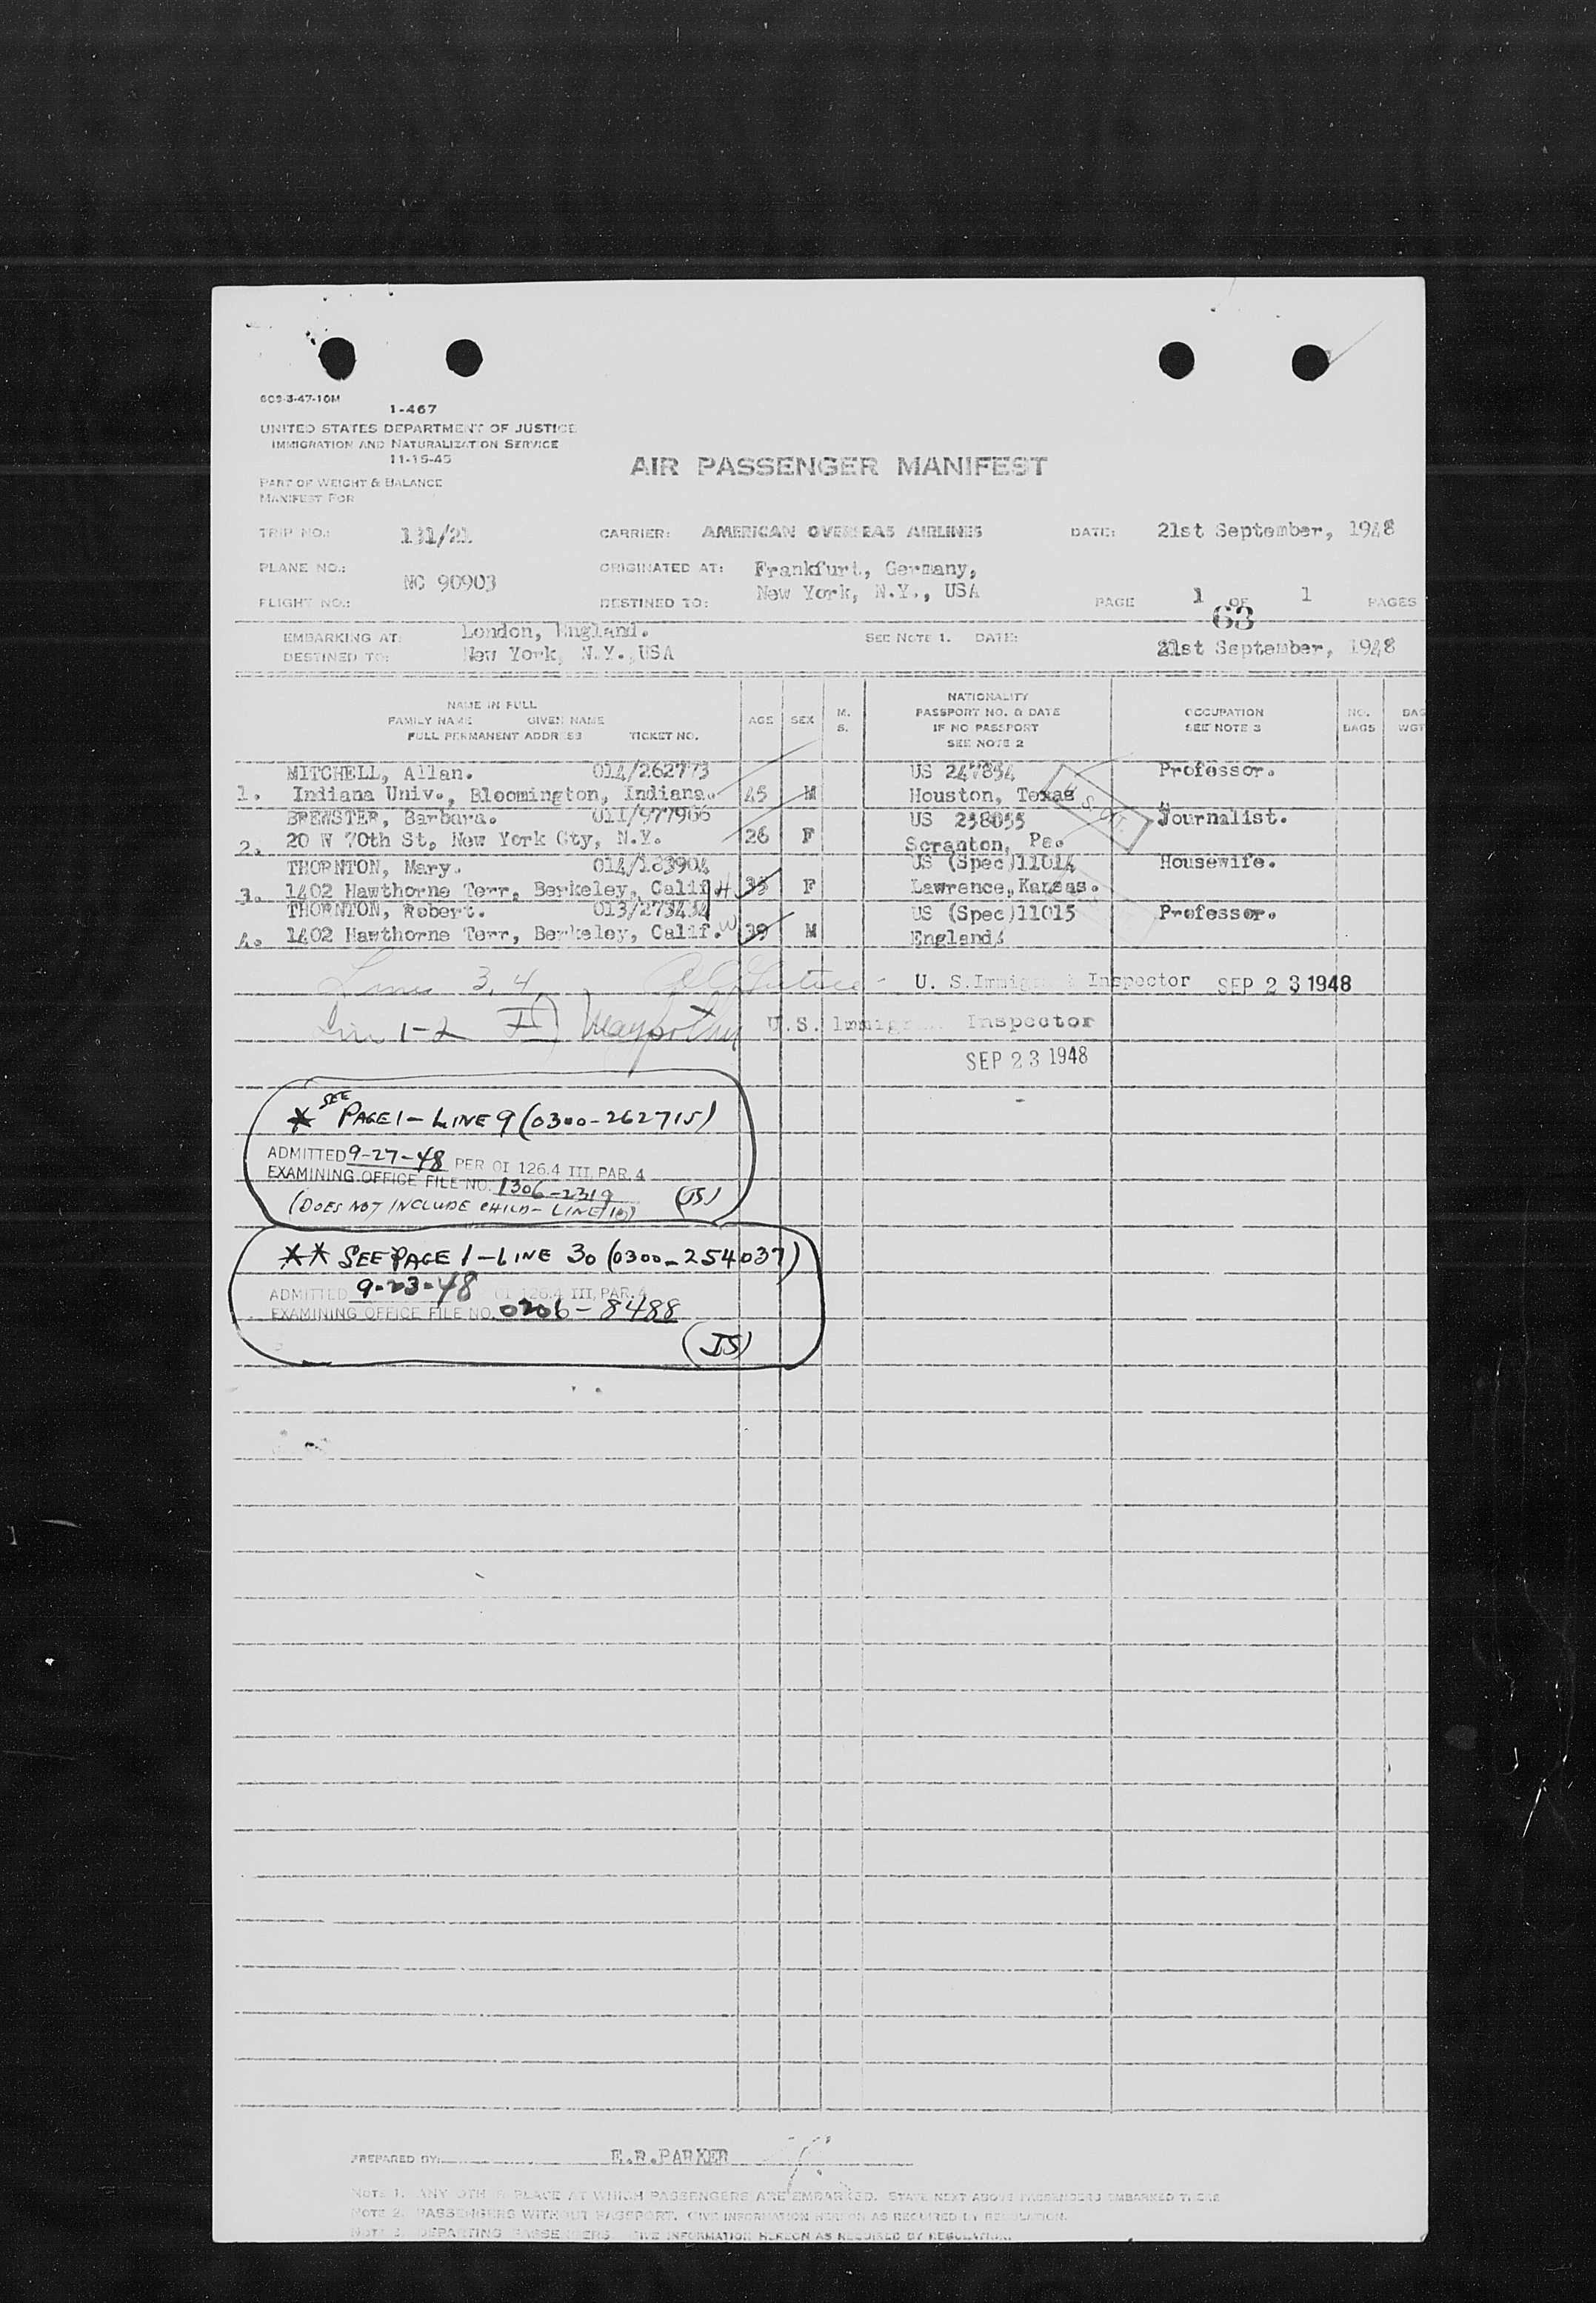 609-3-47-10M
1-467
UNITED STATES DEPARTMENT OF JUSTICE
IMMIGRATION AND NATURALIZATION SERVICE
11-15-45
AIR PASSENGER MANIFEST
PART OF WEIGHT & BALANCE
MANIFEST FOR
TRIP NO.: 131/21 CARRIER: AMERICAN OVERSEAS AIRLINES DATE: 21st September, 1948
PLANE NO.: NC 90903 ORIGINATED AT: Frankfurt, Germany,
FLIGHT NO.: DESTINED TO: New York, N.Y., USA PAGE 1 OF 1 PAGES
63
EMBARKING AT: London, England. SEE NOTE 1. DATE:
DESTINED TO: New York, N.Y.,USA 21st September, 1948
NAME IN FULL
FAMILY NAME GIVEN NAME
FULL PERMANENT ADDRESS TICKET NO.
AGE SEX M. S.
NATIONALITY
PASSPORT NO. & DATE
IF NO PASSPORT
SEE NOTE 2
OCCUPATION
SEE NOTE 3
NO. BAGS
BAG WGT
MITCHELL, Allan. 014/262773 US 247854 Professor.
1. Indiana Univ., Bloomington, Indiana. 45 M Houston, Texas
BREWSTER, Barbara. 011/977966 US 258055 Journalist.
2. 20 W 70th St, New York Cty, N.Y. 26 F Scranton, Pa.
THORNTON, Mary. 014/183904 US (Spec)11014 Housewife.
3. 1402 Hawthorne Terr, Berkeley, Calif. H 35 F Lawrence, Kansas.
THORNTON, Robert. 013/273434 US (Spec)11015 Professor.
4. 1402 Hawthorne Terr, Berkeley, Calif. W 39 M England.
Lines 3, 4 U. S. Immigrant Inspector SEP 23 1948
Line 1-2 U.S. Immigrant Inspector
SEP 23 1948
* SEE PAGE 1 - LINE 9 (0300-262715)
ADMITTED 9-27-48 PER OI 126.4 III, PAR. 4
EXAMINING OFFICE FILE NO. 1306-2319
(DOES NOT INCLUDE CHILD - LINE 10) (JS)
** SEE PAGE 1 - LINE 30 (0300-254037)
ADMITTED 9-23-48 OI 126.4 III, PAR. 4
EXAMINING OFFICE FILE NO. 0206-8488
(JS)
PREPARED BY: E.R.PARKER
NOTE 1. ANY OTHER PLACE AT WHICH PASSENGERS ARE EMBARKED. STATE NEXT ABOVE PASSENGERS EMBARKED THERE
NOTE 2. PASSENGERS WITHOUT PASSPORT. GIVE INFORMATION HEREON AS REQUIRED BY REGULATION.
NOTE 3. DEPARTING PASSENGERS. GIVE INFORMATION HEREON AS REQUIRED BY REGULATION.